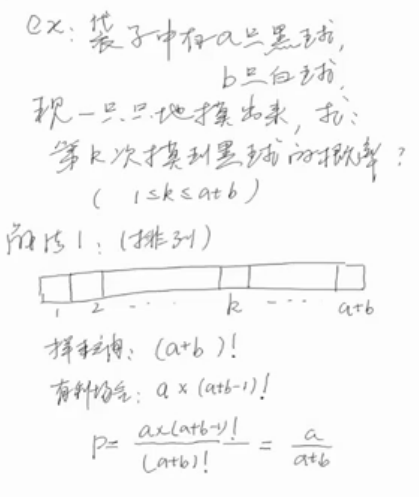 ex: 袋子中有a只黑球,
b只白球,
现一只只地摸出来, 求:
第k次摸到黑球的概率?
( 1≤k≤a+b )
解法1: (排列)
1 2 ···· k ···· a+b
样本空间: (a+b)!
有利场合: a×(a+b-1)!
P= a×(a+b-1)! / (a+b)! = a / a+b